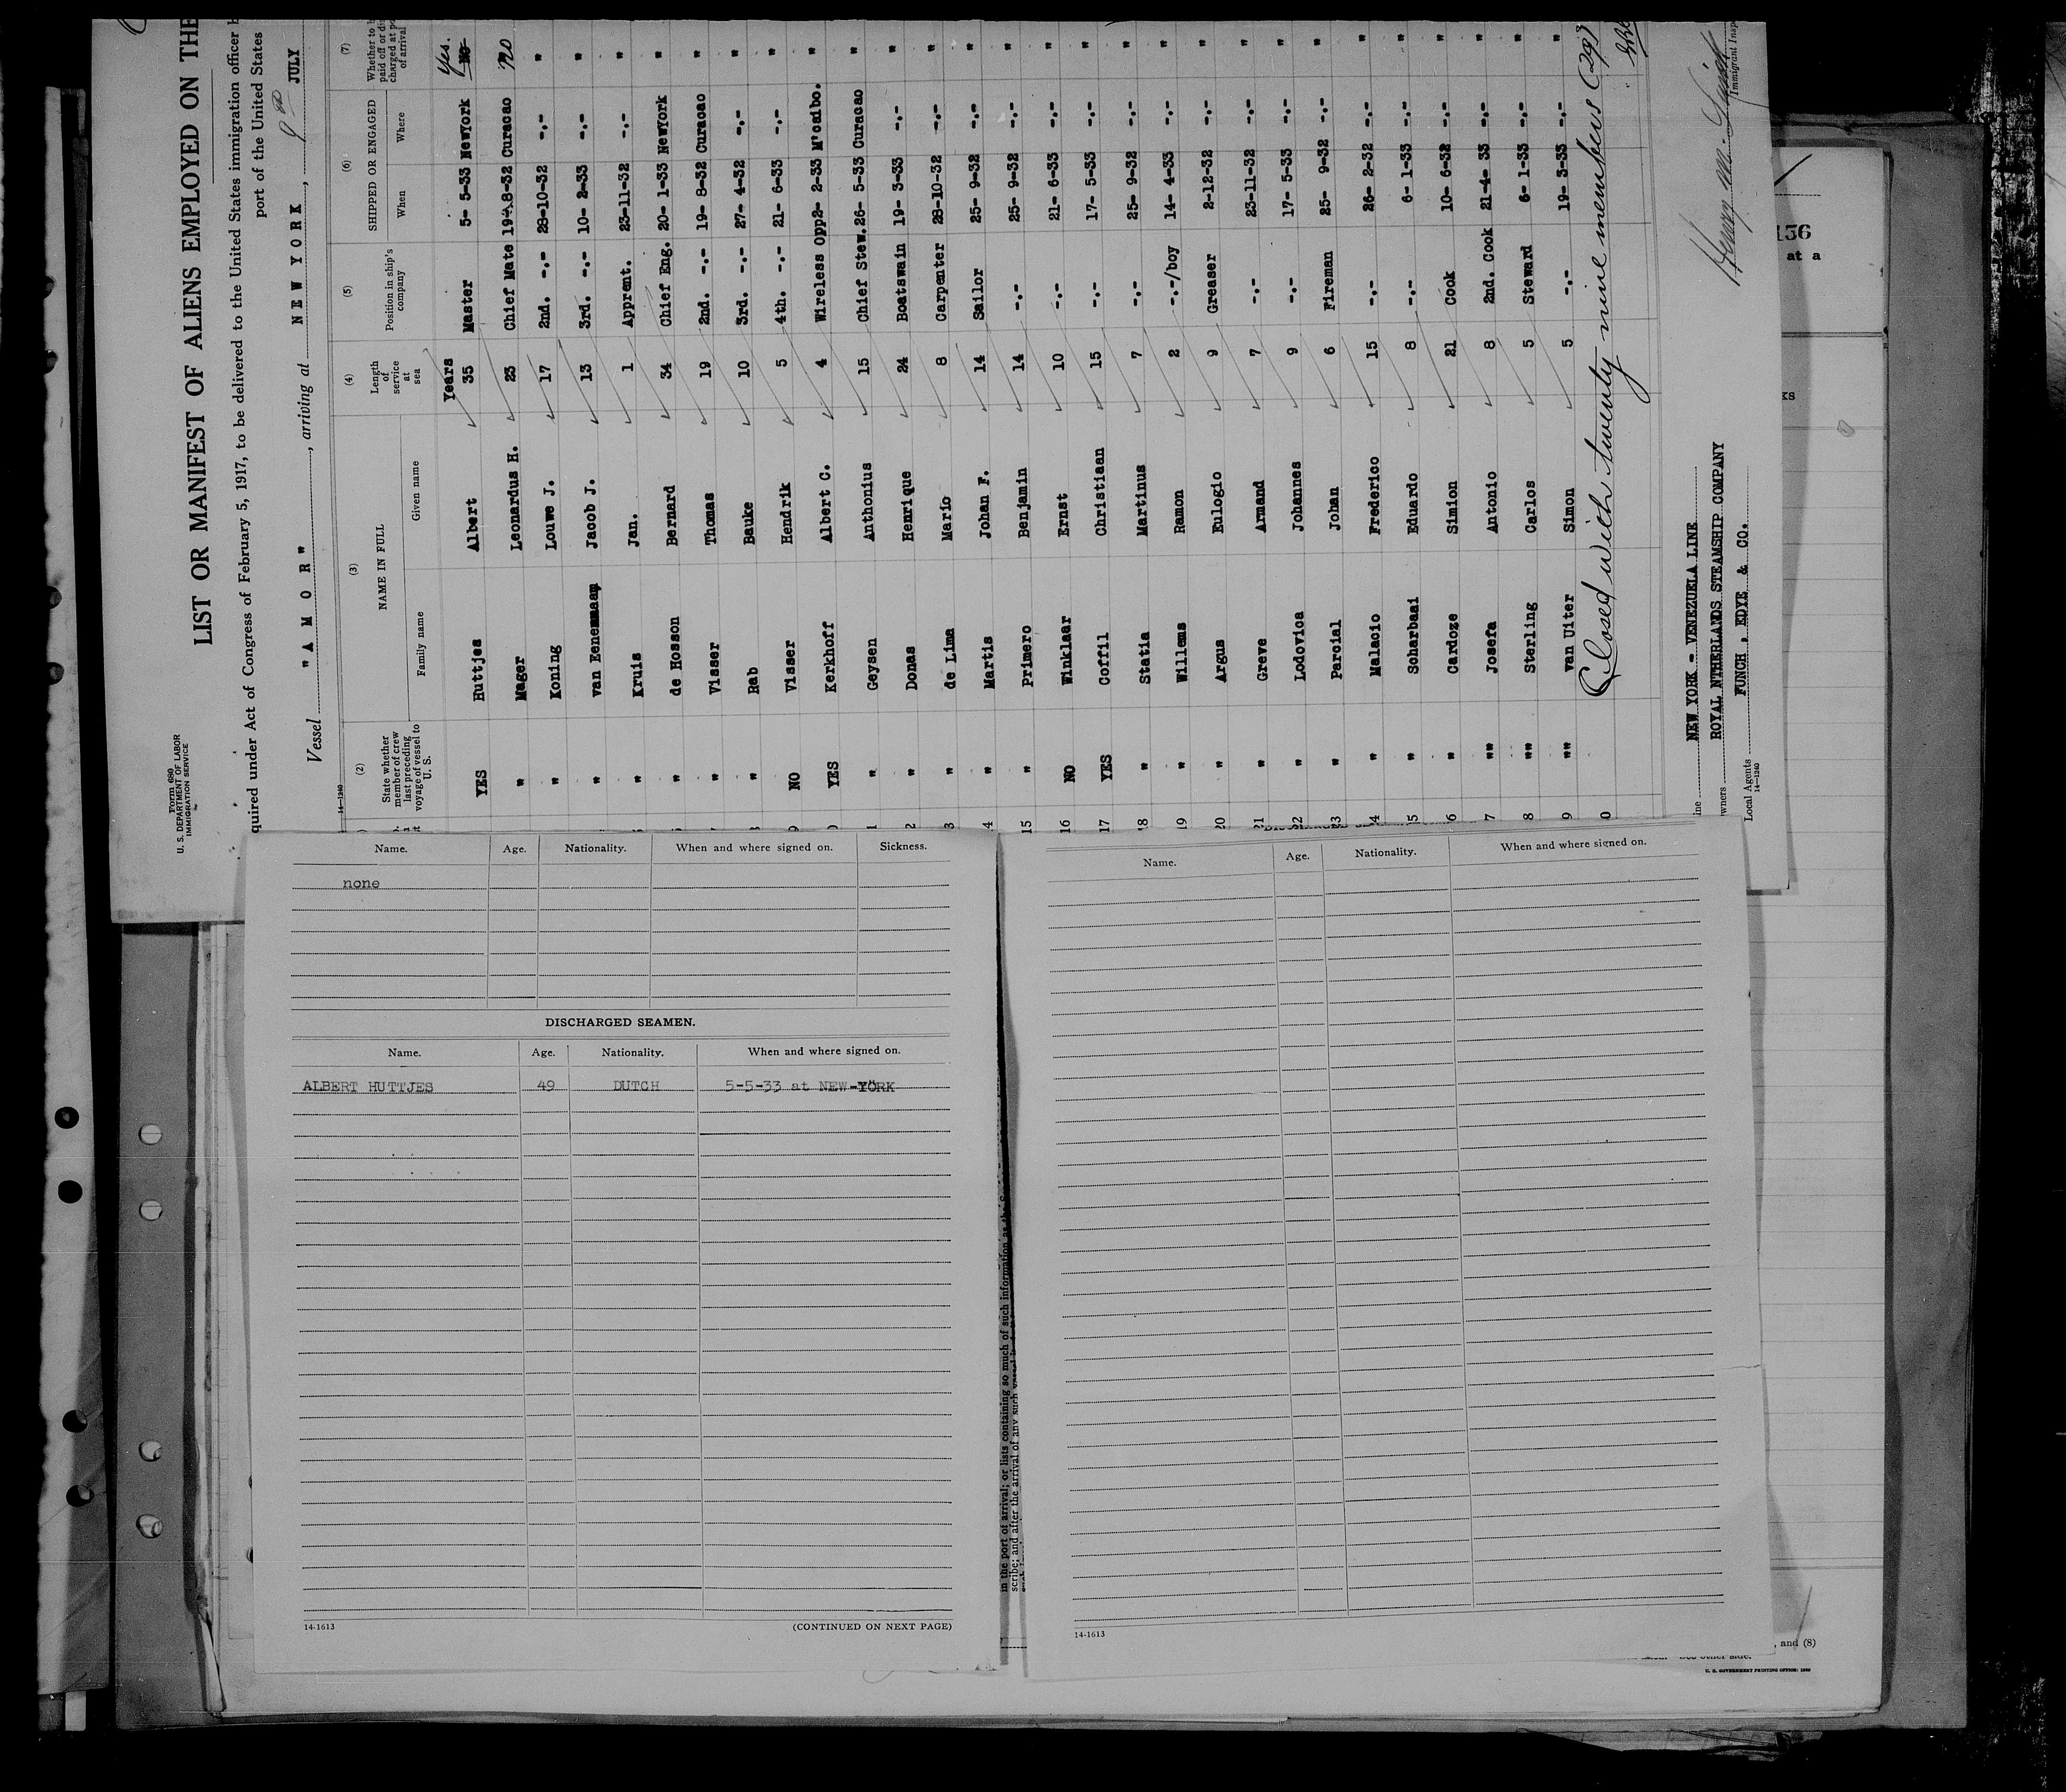 Form 680
U. S. DEPARTMENT OF LABOR
IMMIGRATION SERVICE
LIST OR MANIFEST OF ALIENS EMPLOYED ON THE
quired under Act of Congress of February 5, 1917, to be delivered to the United States immigration officer
port of the United States
Vessel "A M O R", arriving at N E W Y O R K, JULY
14-1240
(2) (3) (4) (5) (6) (7)
State whether member of crew last preceding voyage of vessel to U. S.
NAME IN FULL
Family name Given name
Length of service at sea
Position in ship's company
SHIPPED OR ENGAGED
When Where
Whether to paid off or charged at of arrival
Years
YES Huttjes Albert 35 Master 5- 5-33 NewYork No Yes.
" Mager Leonardus H. 23 Chief Mate 19-8-32 Curacao no
" Koning Louwe J. 17 2nd. -.- 28-10-32 -.- "
" van Eenenaam Jacob J. 13 3rd. -.- 10- 2-33 -.- "
" Kruis Jan. 1 Apprent. 23-11-32 -.- "
" de Hosson Bernard 34 Chief Eng. 20- 1-33 NewYork "
" Visser Thomas 19 2nd. -.- 19- 8-32 Curacao "
" Rab Bauke 10 3rd. -.- 27- 4-32 -.- "
9 NO Visser Hendrik 5 4th. -.- 21- 6-33 -.- "
0 YES Kerkhoff Albert C. 4 Wireless Opp 2- 2-33 M'caibo. "
1 " Geysen Anthonius 15 Chief Stew. 26- 5-33 Curacao "
2 " Donas Henrique 24 Boatswain 19- 3-33 -.- "
3 " de Lima Mario 8 Carpenter 28-10-32 -.- "
4 " Martis Johan F. 14 Sailor 25- 9-32 -.- "
15 " Primero Benjamin 14 -.- 25- 9-32 -.- "
16 NO Winklaar Ernst 10 -.- 21- 6-33 -.- "
17 YES Coffil Christiaan 15 -.- 17- 5-33 -.- "
18 " Statia Martinus 7 -.- 25- 9-32 -.- "
19 " Willems Ramon 2 -.-/boy 14- 4-33 -.- "
20 " Argus Eulogio 9 Greaser 2-12-32 -.- "
21 " Greve Armand 7 -.- 23-11-32 -.- "
22 " Lodovica Johannes 9 -.- 17- 5-33 -.- "
23 " Parcial Johan 6 Fireman 25- 9-32 -.- "
24 " Malacio Frederico 15 -.- 26- 2-32 -.- "
5 " Scharbaai Eduardo 8 -.- 6- 1-33 -.- "
6 " Cardoze Simion 21 Cook 10- 6-32 -.- "
7 "" Josefa Antonio 8 2nd. Cook 21-4- 33 -.- "
8 "" Sterling Carlos 5 Steward 6- 1-33 -.- "
9 "" van Uiter Simon 5 -.- 19- 3-33 -.- "
0 Closed with twenty nine members (29)
ine NEW YORK - VENEZUELA LINE
wners ROYAL NTHERLANDS STEAMSHIP COMPANY
Local Agents FUNCH , EDYE & CO.
14-1240
Immigrant Insp
156
at a
Name. Age. Nationality. When and where signed on. Sickness.
none
DISCHARGED SEAMEN.
Name. Age. Nationality. When and where signed on.
ALBERT HUTTJES 49 DUTCH 5-5-33 at NEW-YORK
14-1613
(CONTINUED ON NEXT PAGE)
in the port of arrival; or lists containing so much of such information as the
scribe; and after the arrival of any such
Name. Age. Nationality. When and where signed on.
14-1613
, and (8)
U. S. GOVERNMENT PRINTING OFFICE: